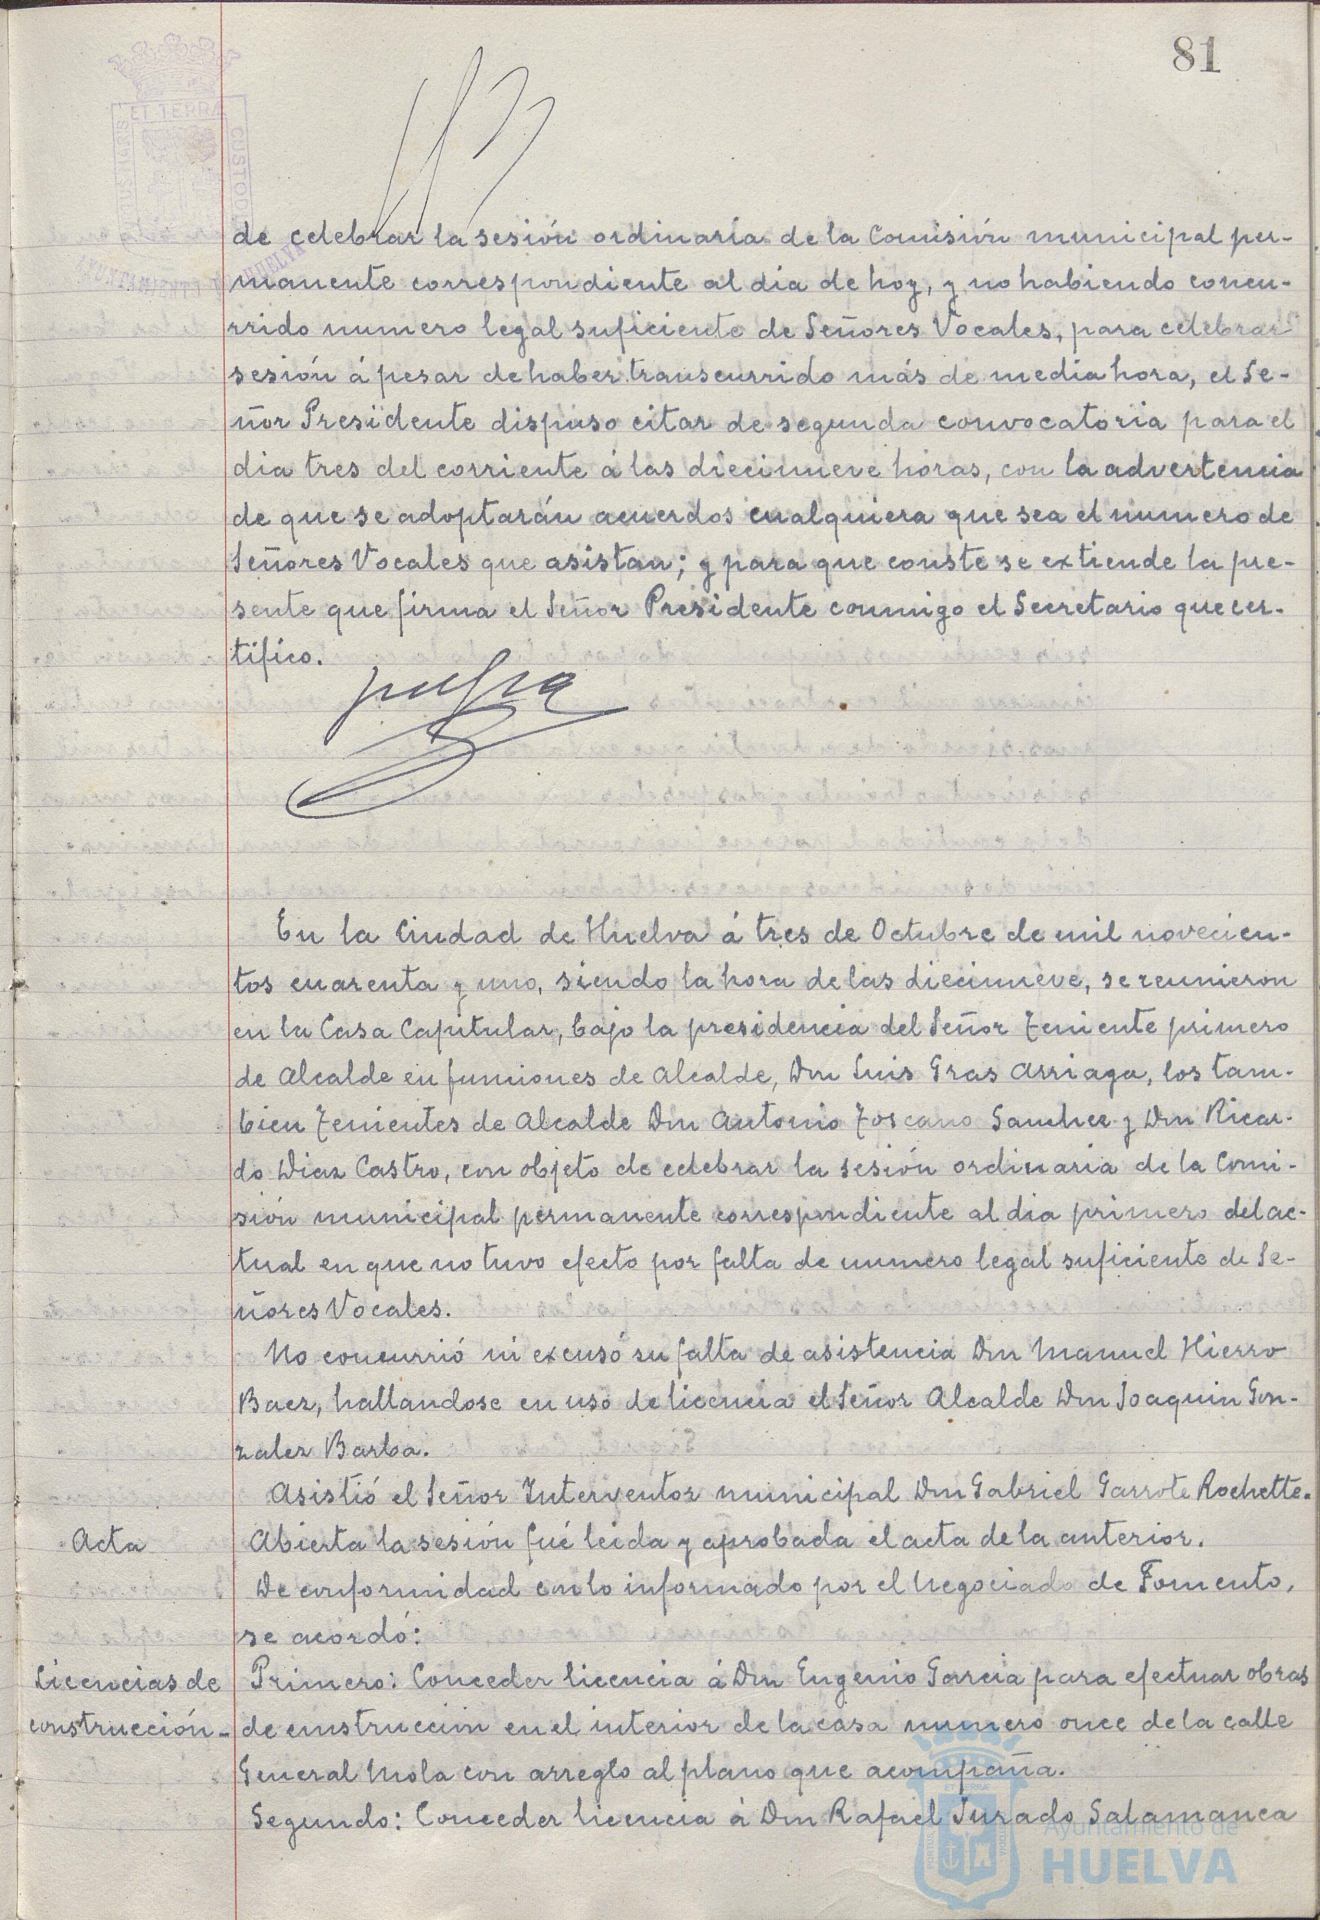 81
ET TERRA
CUSTODIA
AYUNTAMIENTO DE HUELVA
de celebrar la sesión ordinaria de la Comisión municipal per-
manente correspondiente al dia de hoy, y no habiendo concu-
rrido numero legal suficiente de Señores Vocales, para celebrar
sesión á pesar de haber transcurrido más de media hora, el Se-
ñor Presidente dispuso citar de segunda convocatoria para el
dia tres del corriente á las diecinueve horas, con la advertencia
de que se adoptarán acuerdos cualquiera que sea el numero de
Señores Vocales que asistan; y para que conste se extiende la pre-
sente que firma el Señor Presidente conmigo el Secretario que cer-
tifico.
En la Ciudad de Huelva á tres de Octubre de mil novecien-
tos cuarenta y uno, siendo la hora de las diecinueve, se reunieron
en la Casa Capitular, bajo la presidencia del Señor Teniente primero
de Alcalde en funciones de Alcalde, Don Luis Gras Arriaga, los tam-
bien Tenientes de Alcalde Don Antonio Toscano Sanchez y Don Ricar-
do Diaz Castro, con objeto de celebrar la sesión ordinaria de la Comi-
sión municipal permanente correspondiente al dia primero del ac-
tual en que no tuvo efecto por falta de numero legal suficiente de Se-
ñores Vocales.
No concurrió ni excusó su falta de asistencia Don Manuel Hierro
Baez, hallandose en uso de licencia el Señor Alcalde Don Joaquin Gon-
zalez Barba.
Asistió el Señor Interventor municipal Don Gabriel Garrote Rochette.
Acta Abierta la sesión fué leida y aprobada el acta de la anterior.
De conformidad con lo informado por el Negociado de Fomento,
se acordó:
Licencias de Primero: Conceder licencia á Don Eugenio Garcia para efectuar obras
construcción- de construccion en el interior de la casa numero once de la calle
General Mola con arreglo al plano que acompaña.
Segundo: Conceder licencia á Don Rafael Jurado Salamanca
Ayuntamiento de
HUELVA